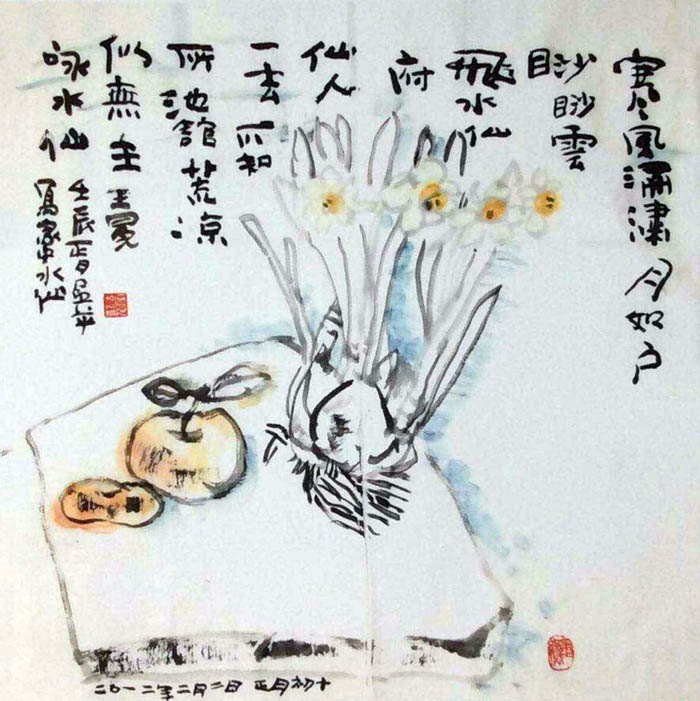 寒風瀟瀟月如户
渺渺雲
飛水仙
府
仙人
一去不知
所池舘荒凉
似無主王冕
咏水仙
壬辰正月
寫家中水仙
二〇一二年二月二日 正月初十